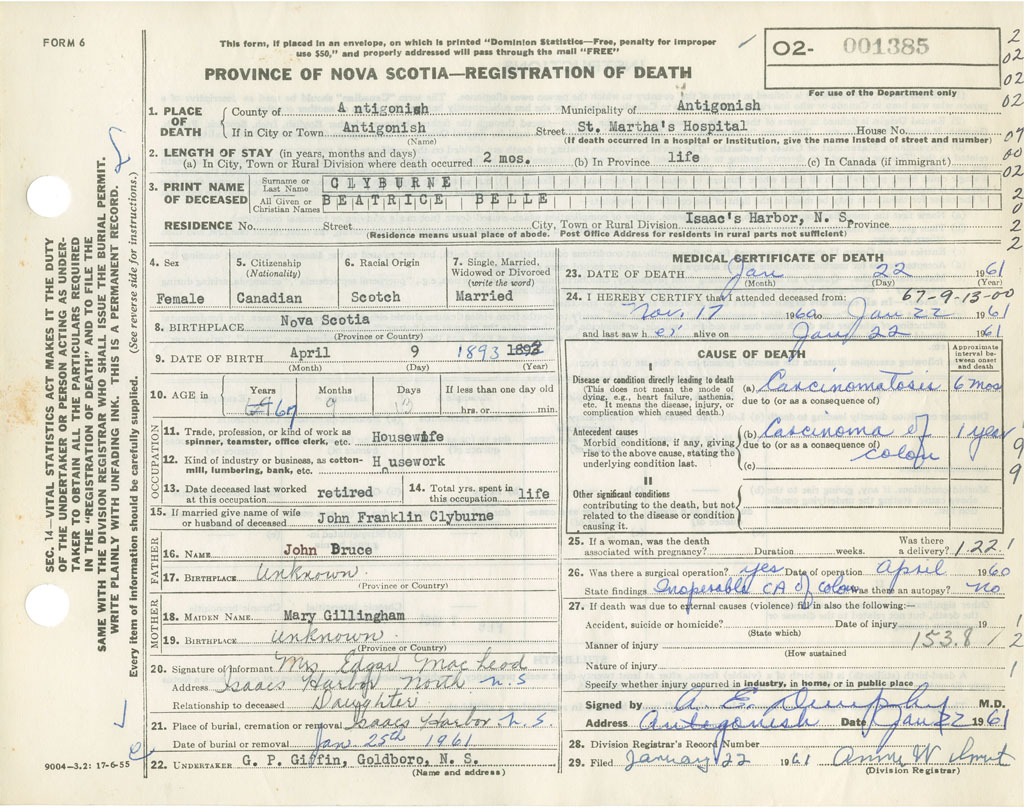 FORM 6
This form, if placed in an envelope, on which is printed "Dominion Statistics—Free, penalty for improper
use $50," and properly addressed will pass through the mail "FREE"
02- 001385
For use of the Department only
PROVINCE OF NOVA SCOTIA—REGISTRATION OF DEATH
1. PLACE OF DEATH
County of Antigonish Municipality of Antigonish
If in City or Town Antigonish Street St. Martha's Hospital House No.
(Name) (If death occurred in a hospital or institution, give the name instead of street and number)
2. LENGTH OF STAY (in years, months and days)
(a) In City, Town or Rural Division where death occurred 2 mos. (b) In Province life (c) In Canada (if immigrant)
3. PRINT NAME OF DECEASED
Surname or Last Name CLYBURNE
All Given or Christian Names BEATRICE BELLE
RESIDENCE No. Street City, Town or Rural Division Isaac's Harbor, N. S. Province
(Residence means usual place of abode. Post Office Address for residents in rural parts not sufficient)
4. Sex
Female
5. Citizenship (Nationality)
Canadian
6. Racial Origin
Scotch
7. Single, Married, Widowed or Divorced (write the word)
Married
8. BIRTHPLACE Nova Scotia
(Province or Country)
9. DATE OF BIRTH April 9 1893 1892
(Month) (Day) (Year)
10. AGE in
Years 67
Months 9
Days 13
If less than one day old
hrs. or min.
OCCUPATION
11. Trade, profession, or kind of work as
spinner, teamster, office clerk, etc. Housewife
12. Kind of industry or business, as cotton-
mill, lumbering, bank, etc. Housework
13. Date deceased last worked
at this occupation retired
14. Total yrs. spent in
this occupation life
15. If married give name of wife
or husband of deceased John Franklin Clyburne
FATHER
16. NAME John Bruce
17. BIRTHPLACE Unknown
(Province or Country)
MOTHER
18. MAIDEN NAME Mary Gillingham
19. BIRTHPLACE Unknown
(Province or Country)
20. Signature of Informant Mrs Edgar MacLeod
Address Isaacs Harbor North N.S
Relationship to deceased Daughter
21. Place of burial, cremation or removal Isaacs Harbor N.S.
Date of burial or removal Jan 25th 1961
22. UNDERTAKER G. P. Giffin, Goldboro, N. S.
(Name and address)
MEDICAL CERTIFICATE OF DEATH
23. DATE OF DEATH Jan 22 1961
(Month) (Day) (Year)
24. I HEREBY CERTIFY that I attended deceased from: 67-9-13-00
Nov. 17 1960 to Jan 22 1961
and last saw her alive on Jan 22 1961
CAUSE OF DEATH
Approximate interval between onset and death
I
Disease or condition directly leading to death
(This does not mean the mode of
dying, e.g., heart failure, asthenia,
etc. It means the disease, injury, or
complication which caused death.)
(a) Carcinomatosis 6 mos
due to (or as a consequence of)
Antecedent causes
Morbid conditions, if any, giving
rise to the above cause, stating the
underlying condition last.
(b) Carcinoma of colon 1 year
due to (or as a consequence of)
(c)
II
Other significant conditions
contributing to the death, but not
related to the disease or condition
causing it.
25. If a woman, was the death
associated with pregnancy? Duration weeks. Was there a delivery? 1.22.1
26. Was there a surgical operation? yes Date of operation April 1960
State findings Inoperable CA of colon Was there an autopsy? no
27. If death was due to external causes (violence) fill in also the following:—
Accident, suicide or homicide? Date of injury 19
(State which)
Manner of injury 153.8
(How sustained
Nature of injury
Specify whether injury occurred in industry, in home, or in public place
Signed by A. E. Dunphy M.D.
Address Antigonish Date Jan 22 1961
28. Division Registrar's Record Number
29. Filed January 22 1961
(Division Registrar)
SEC. 14—VITAL STATISTICS ACT MAKES IT THE DUTY
OF THE UNDERTAKER OR PERSON ACTING AS UNDER-
TAKER TO OBTAIN ALL THE PARTICULARS REQUIRED
IN THE "REGISTRATION OF DEATH" AND TO FILE THE
SAME WITH THE DIVISION REGISTRAR WHO SHALL ISSUE THE BURIAL PERMIT.
WRITE PLAINLY WITH UNFADING INK. THIS IS A PERMANENT RECORD.
Every item of information should be carefully supplied. (See reverse side for instructions.)
9004—3.2: 17-6-55
2
02
02
02
07
00
02
2
0
2
2
9
9
9
1
2
1